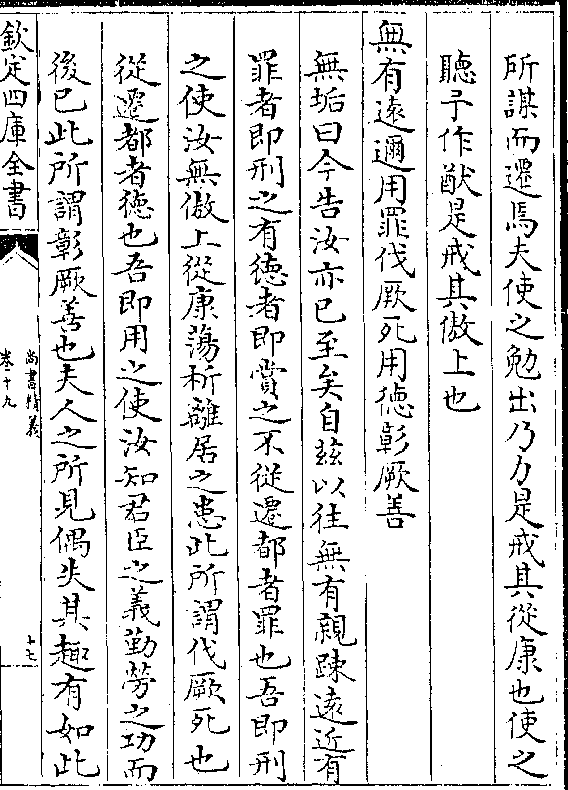 所謀而遷焉夫使之勉出乃力是戒其從康也使之
聽予作猷是戒其傲上也
無有遠邇用罪伐厥死用徳彰厥善
無垢曰今告汝亦已至矣自兹以往無有親踈遠近有
罪者即刑之有徳者即賞之不從遷都者罪也吾即刑
之使汝無傲上從康蕩析離居之患此所謂伐厥死也
從遷都者徳也吾即用之使汝知君臣之義勤勞之功而
後已此所謂彰厥善也夫人之所見偶失其趣有如此
欽定四庫全書
尚書精義
卷十九
十七